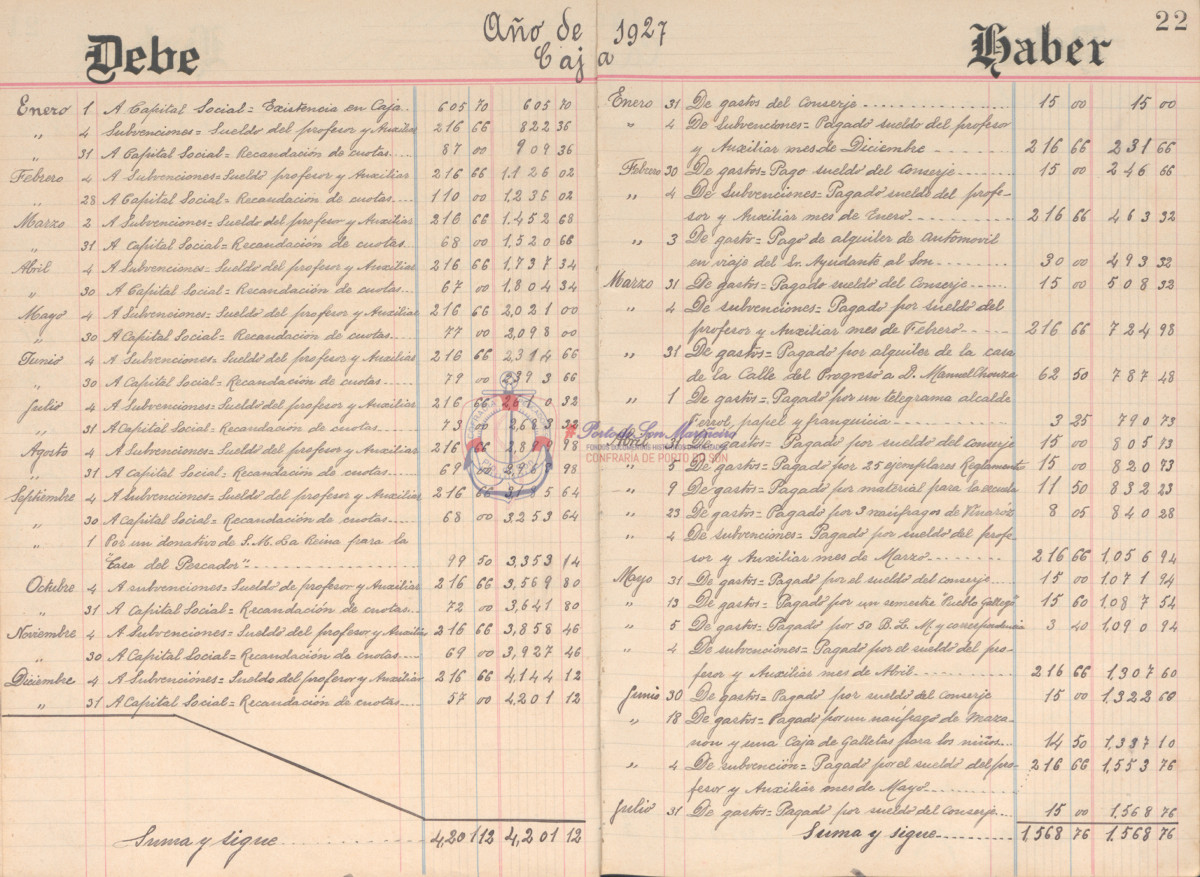 Año de 1927
22
Debe Caja Haber
Enero 1 A Capital Social = Existencia en Caja.. 605 70 605 70
" 4 Subvenciones = Sueldo del profesor y Auxiliar 216 66 822 36
" 31 A Capital Social = Recaudación de cuotas.... 87 00 909 36
Febrero 4 A Subvenciones = Sueldo profesor y Auxiliar 216 66 1.126 02
" 28 A Capital Social = Recaudación de cuotas.... 110 00 1.236 02
Marzo 2 A Subvenciones = Sueldo del profesor y Auxiliar 216 66 1.452 68
" 31 A Capital Social = Recaudación de cuotas.... 68 00 1,520 66
Abril 4 A Subvenciones = Sueldo del profesor y Auxiliar 216 66 1,737 34
" 30 A Capital Social = Recaudación de cuotas.... 67 00 1.804 34
Mayo 4 A Subvenciones = Sueldo del profesor y Auxiliar 216 66 2,021 00
" 30 A Capital Social = Recaudación de cuotas.... 77 00 2,098 00
Junio 4 A Subvenciones = Sueldo del profesor y Auxiliar 216 66 2314 66
" 30 A Capital Social = Recaudación de cuotas.... 79 00 2393 66
Julio 4 A Subvenciones = Sueldo del profesor y Auxiliar 216 66 2610 32
" 31 A Capital Social = Recaudación de cuotas.... 73 00 2,683 32
Agosto 4 A Subvenciones = Sueldo del profesor y Auxiliar 216 66 2,899 98
" 31 A Capital Social = Recaudación de cuotas.... 69 00 2968 98
Septiembre 4 A subvenciones = Sueldo del profesor y Auxiliar 216 66 3,185 64
" 30 A Capital Social = Recaudación de cuotas.... 68 00 3,253 64
" 1 Por un donativo de S.M. La Reina para la
"Casa del Pescador"........ 99 50 3,353 14
Octubre 4 A subvenciones = Sueldo de profesor y Auxiliar 216 66 3,569 80
" 31 A Capital Social = Recaudación de cuotas... 72 00 3,641 80
Noviembre 4 A Subvenciones = Sueldo del profesor y Auxiliar 216 66 3,858 46
" 30 A Capital Social = Recaudación de cuotas.... 69 00 3,927 46
Diciembre 4 A Subvenciones = Sueldo del profesor y Auxiliar 216 66 4,144 12
" 31 A Capital Social = Recaudación de cuotas.... 57 00 4,201 12
Suma y sigue........ 4,201 12 4,201 12
Enero 31 De gastos del Conserje........ 15 00 15 00
" 4 De Subvenciones = Pagado sueldo del profesor
y Auxiliar mes de Diciembre.... 216 66 231 66
Febrero 30 De gastos = Pago sueldo del Conserje.... 15 00 246 66
" 4 De Subvenciones = Pagado sueldo del profe-
sor y Auxiliar mes de Enero........ 216 66 463 32
" 3 De gasto = Pago de alquiler de automovil
en viaje del Sr. Ayudante al Son...... 30 00 493 32
Marzo 31 De gastos = Pagado sueldo del Conserje.... 15 00 508 32
" 4 De subvenciones = Pagado por sueldo del
profesor y Auxiliar mes de Febrero...... 216 66 724 98
" 31 De gastos = Pagado por alquiler de la casa
de la Calle del Progreso a D. Manuel Chouza 62 50 787 48
" 1 De gastos = Pagado por un telegrama alcalde
Ferrol, papel y franquicia........ 3 25 790 73
Abril 31 De gastos = Pagado por sueldo del conserje 15 00 805 73
" 5 De gastos = Pagado por 25 ejemplares Reglamento 15 00 820 73
" 9 De gastos = Pagado por material para la escuela 11 50 832 23
" 23 De gastos = Pagado por 3 naufragos de Vinaroz 8 05 840 28
" 4 De subvenciones = Pagado por sueldo del profe-
sor y Auxiliar mes de Marzo........ 216 66 1,056 94
Mayo 31 De gastos = Pagado por el sueldo del conserje.... 15 00 1.071 94
" 13 De gastos = Pagado por un semestre "Pueblo Gallego" 15 60 1.087 54
" 5 De gastos = Pagado por 50 B.L.M. y correspondencia 3 40 1,090 94
" 4 De subvenciones = Pagado por el sueldo del pro-
fesor y Auxiliar mes de Abril........ 216 66 1,307 60
Junio 30 De gastos = Pagado por sueldo del Conserje 15 00 1.322 60
" 18 De gastos = Pagado por un naúfrago de Maza-
ron y una Caja de Galletas para los niños... 14 50 1,337 10
" 4 De subvención = Pagado por el sueldo del pro- 216 66 1,553 76
fesor y Auxiliar mes de Mayo........
Julio 31 De gastos = Pagado por sueldo del Conserje.. 15 00 1.568 76
Suma y sigue........ 1.568 76 1.568 76
Porto do Son Marineiro
CONFRARÍA DE PORTO DO SON